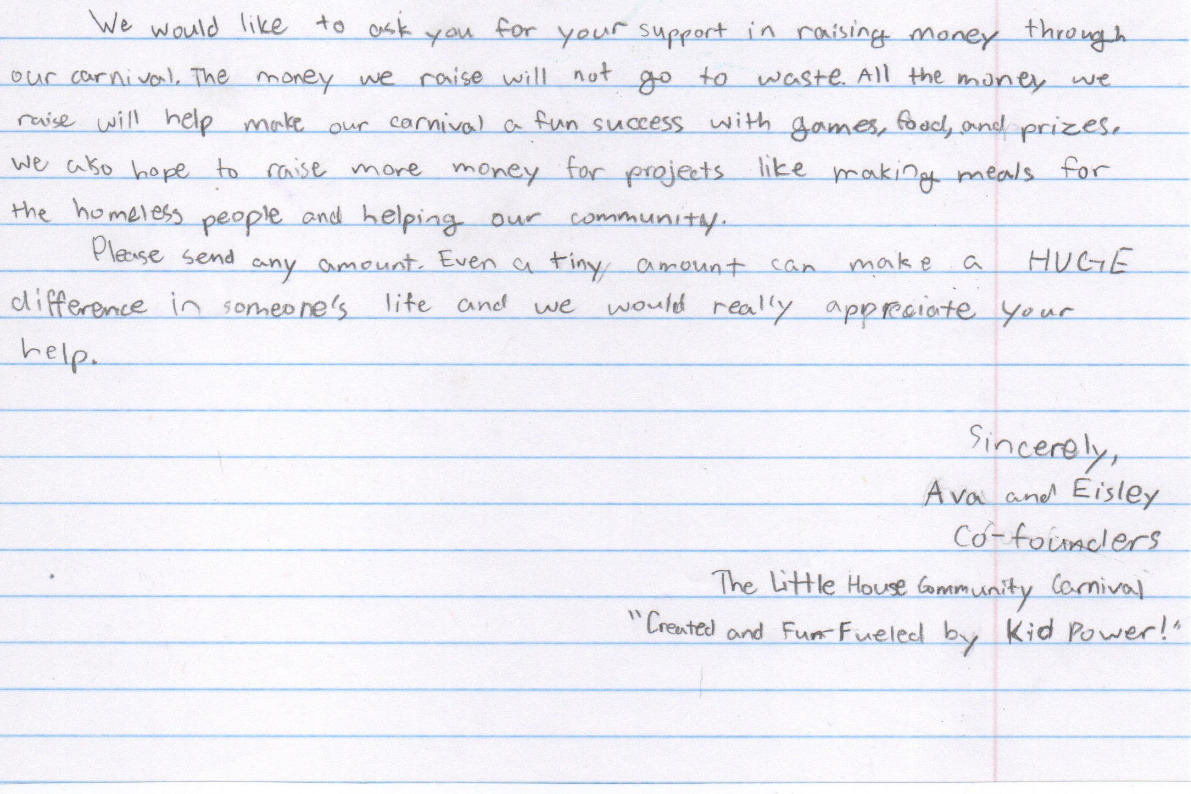 We would like to ask you for your support in raising money through
our carnival. The money we raise will not go to waste. All the money we
raise will help make our carnival a fun success with games, food, and prizes.
We also hope to raise more money for projects like making meals for
the homeless people and helping our community.
Please send any amount. Even a tiny amount can make a HUGE
difference in someone's life and we would really appreciate your
help.
Sincerely,
Ava and Eisley
Co-founders
The Little House Community Carnival
"Created and Fun-Fueled by Kid Power!"